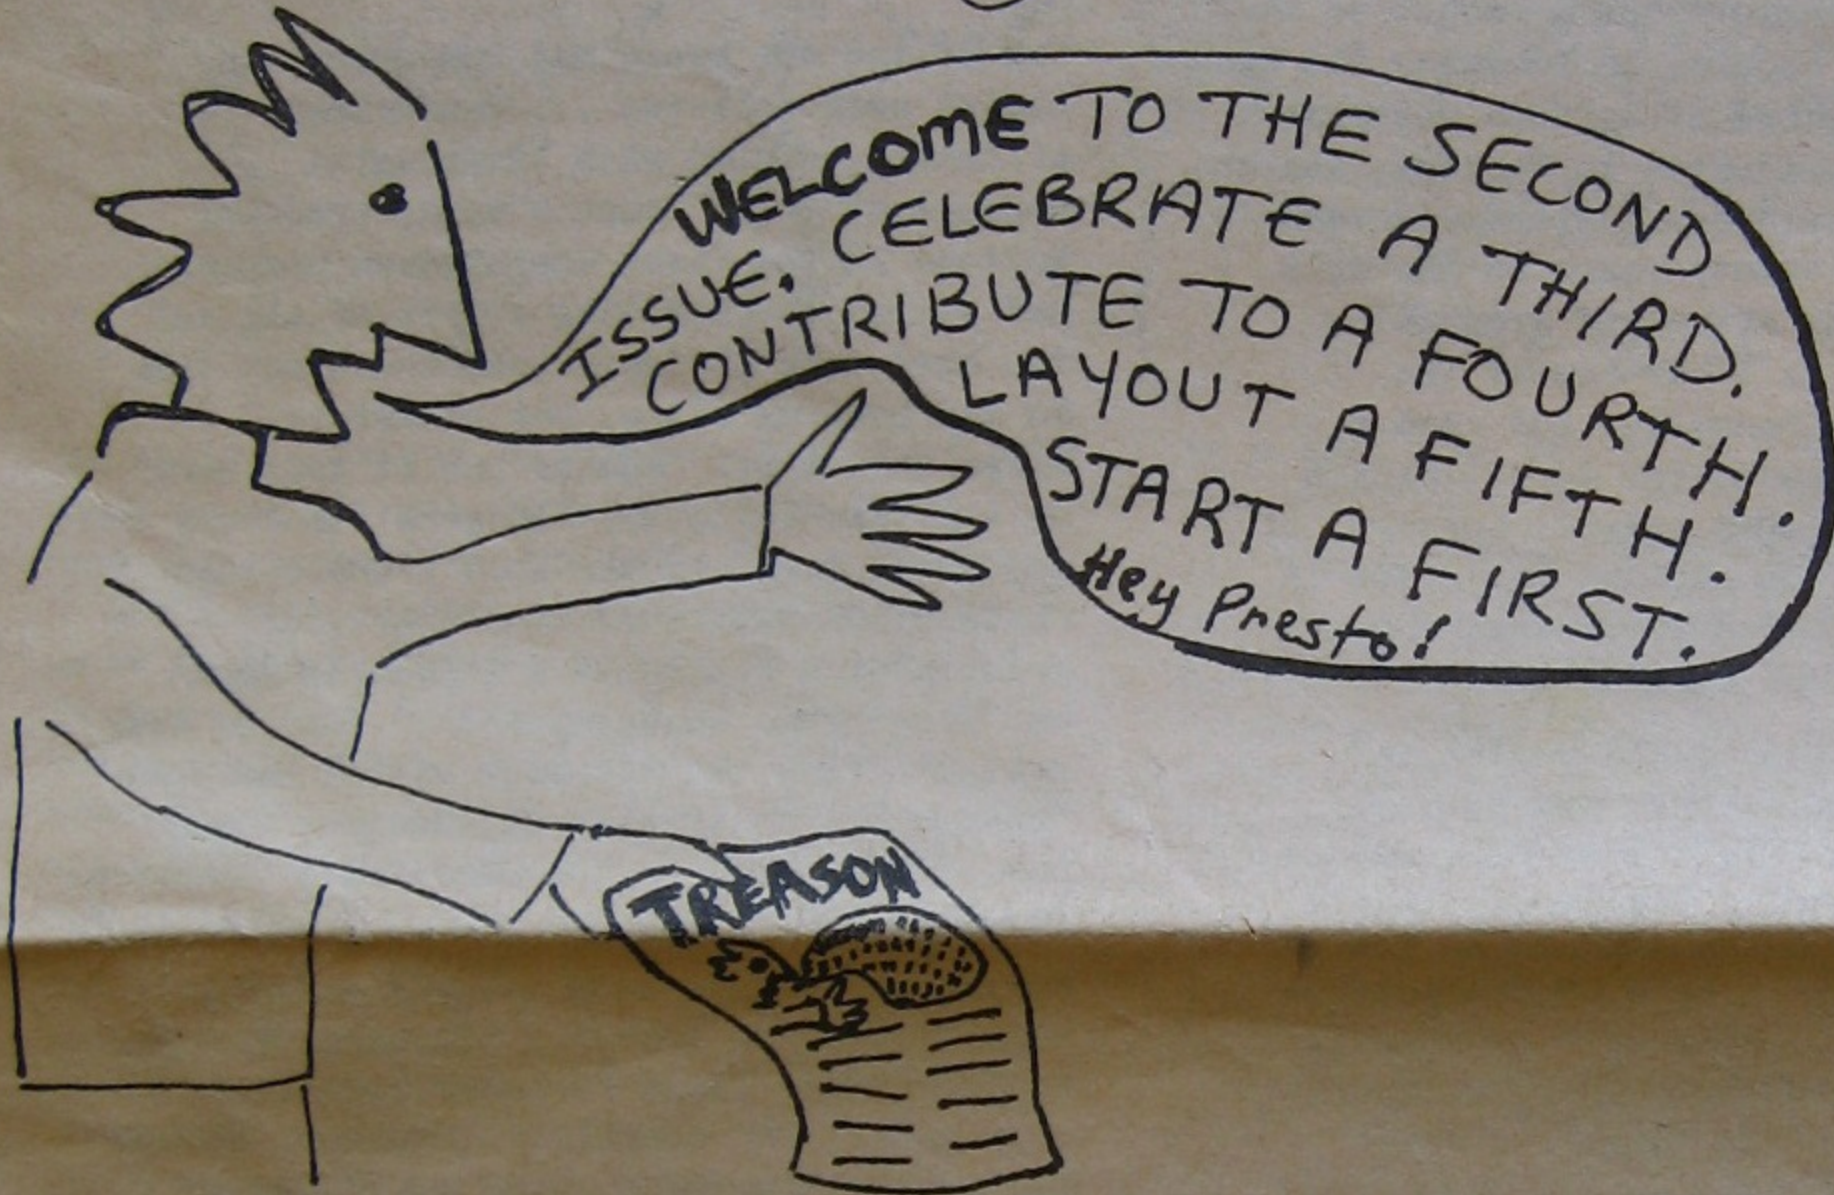 WELCOME TO THE SECOND
ISSUE. CELEBRATE A THIRD.
CONTRIBUTE TO A FOURTH.
LAYOUT A FIFTH.
START A FIRST.
Hey Presto!
TREASON